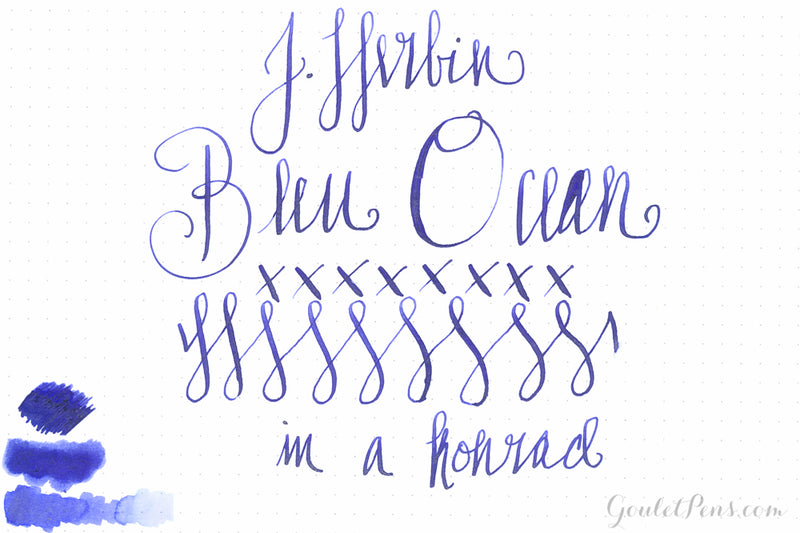 J. Herbin
Bleu Ocean
xxxxxxxx
in a Konrad
GouletPens.com